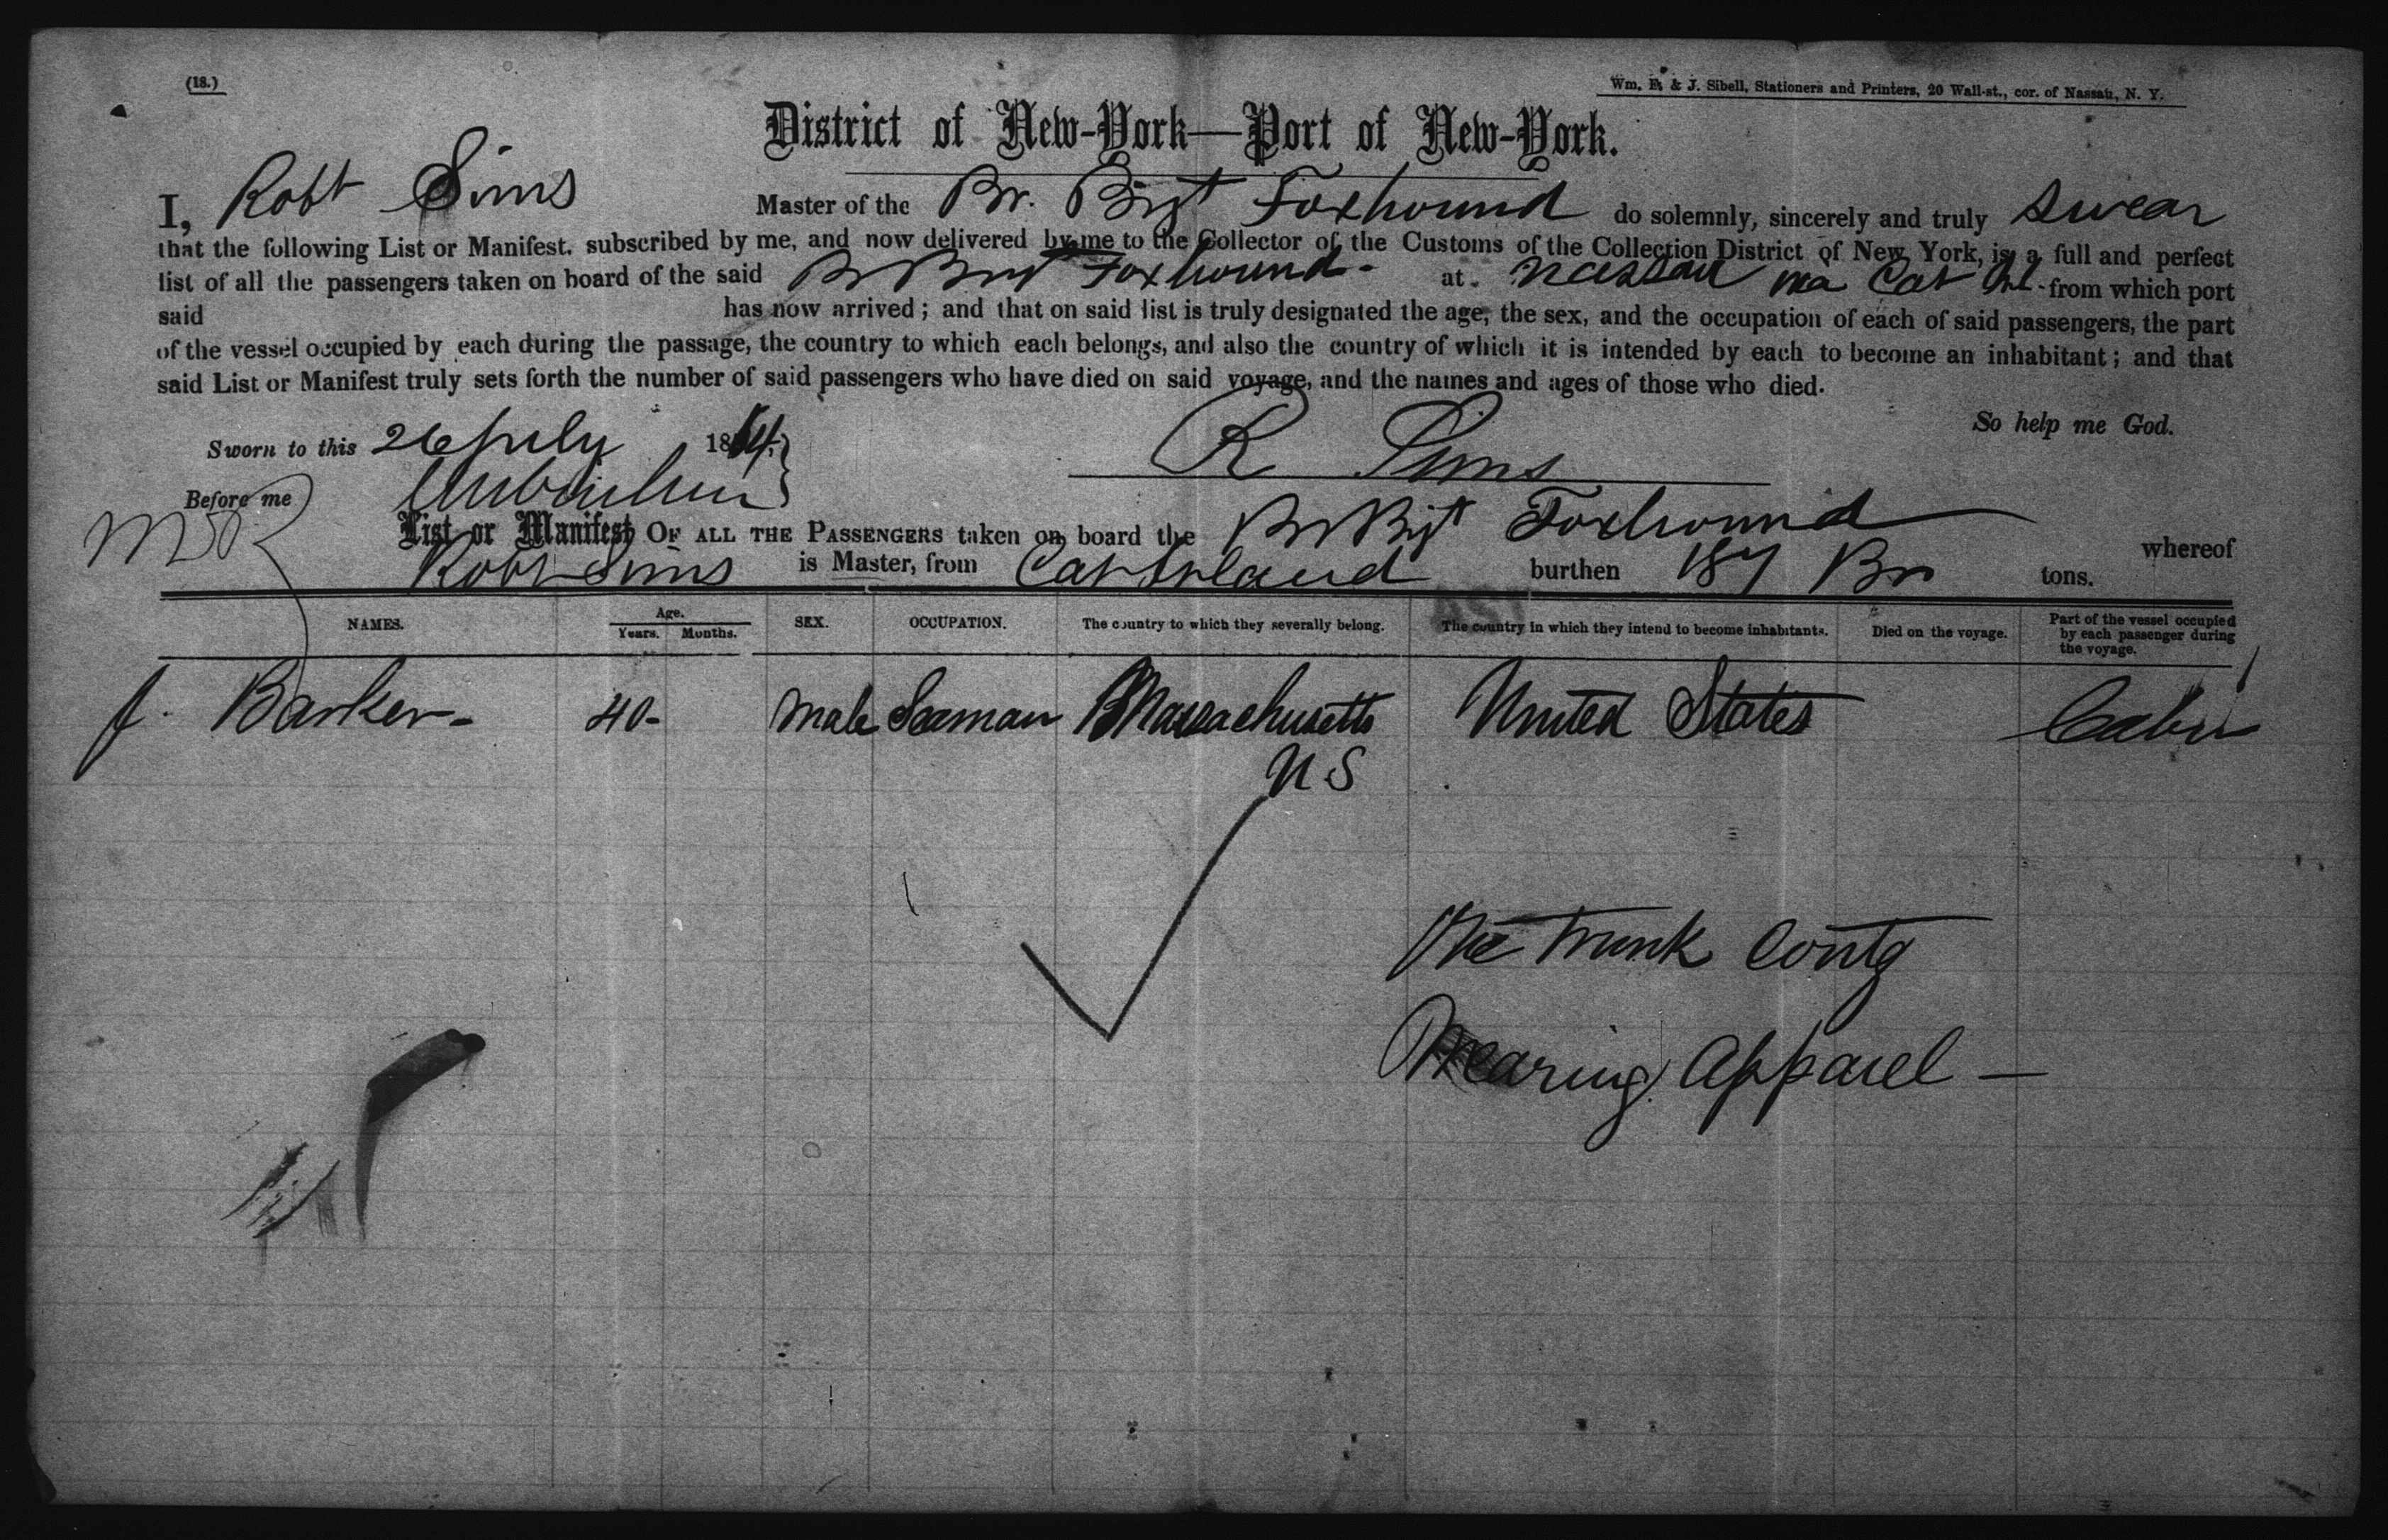 (18.)
Wm. E. & J. Sibell, Stationers and Printers, 20 Wall-st., cor. of Nassau, N. Y.
District of New-York—Port of New-York.
I, Robt Sims Master of the Br. Bigt Foxhound do solemnly, sincerely and truly swear
that the following List or Manifest. subscribed by me, and now delivered by me to the Collector of the Customs of the Collection District of New York, is a full and perfect
list of all the passengers taken on board of the said Br Brigt Foxhound - at Nassau via Cat Isl. from which port
said has now arrived; and that on said list is truly designated the age, the sex, and the occupation of each of said passengers, the part
of the vessel occupied by each during the passage, the country to which each belongs, and also the country of which it is intended by each to become an inhabitant; and that
said List or Manifest truly sets forth the number of said passengers who have died on said voyage, and the names and ages of those who died.
So help me God.
Sworn to this 26 July 1864,
R Sims
Before me
List or Manifest OF ALL THE PASSENGERS taken on board the Br Bigt Foxhound whereof
Robt Sims is Master, from Cat Island burthen 187 Br tons.
NAMES. Age. Years. Months. SEX. OCCUPATION. The country to which they severally belong. The country in which they intend to become inhabitants. Died on the voyage. Part of the vessel occupied by each passenger during the voyage.
J. Barker - 40- Male Seaman Massachusetts United States Cabin
U S
One Trunk Contg
Wearing Apparel —